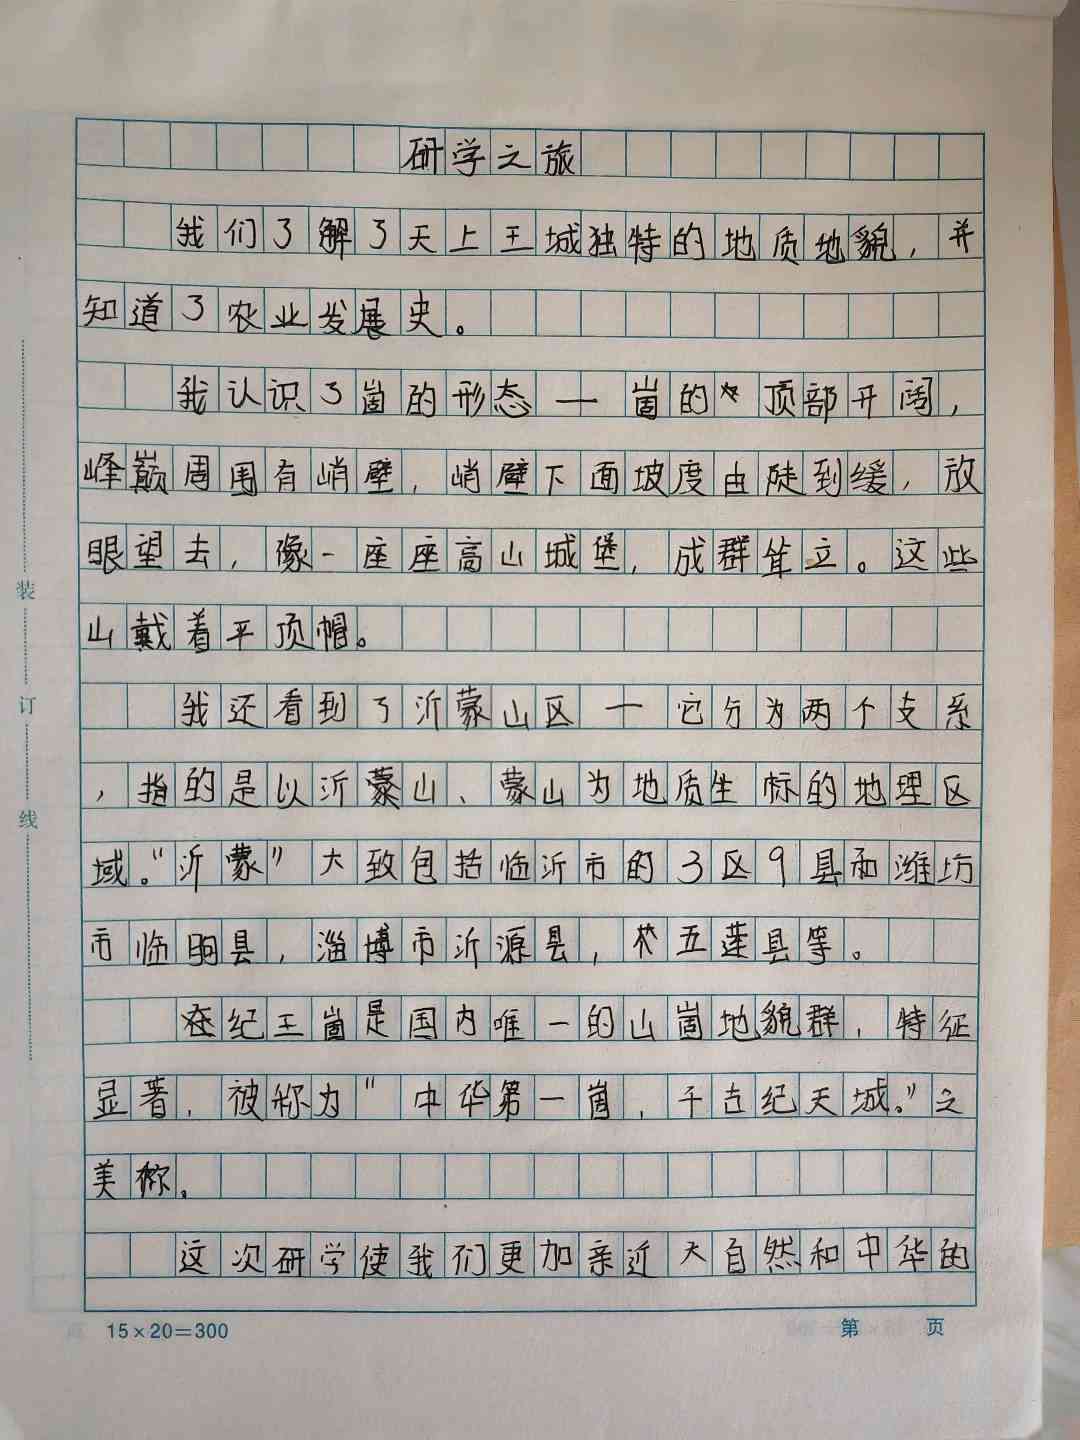 研学之旅
我们了解了天上王城独特的地质地貌，并
知道了农业发展史。
我认识了崮的形态一崮的顶部开阔，
峰巅周围有峭壁，峭壁下面坡度由陡到缓，放
眼望去，像一座座高山城堡，成群耸立。这些
山戴着平顶帽。
我还看到了沂蒙山区一它分为两个支系
，指的是以沂蒙山、蒙山为地质生标的地理区
域。“沂蒙”大致包括临沂市的3区9县和潍坊
市临朐县，淄博市沂源县，五莲县等。
在纪王崮是国内唯一的山崮地貌群，特征
显著，被称为“中华第一崮，千古纪天城。”之
美称。
这次研学使我们更加亲近大自然和中华的
装
订
线
15×20=300
第 页